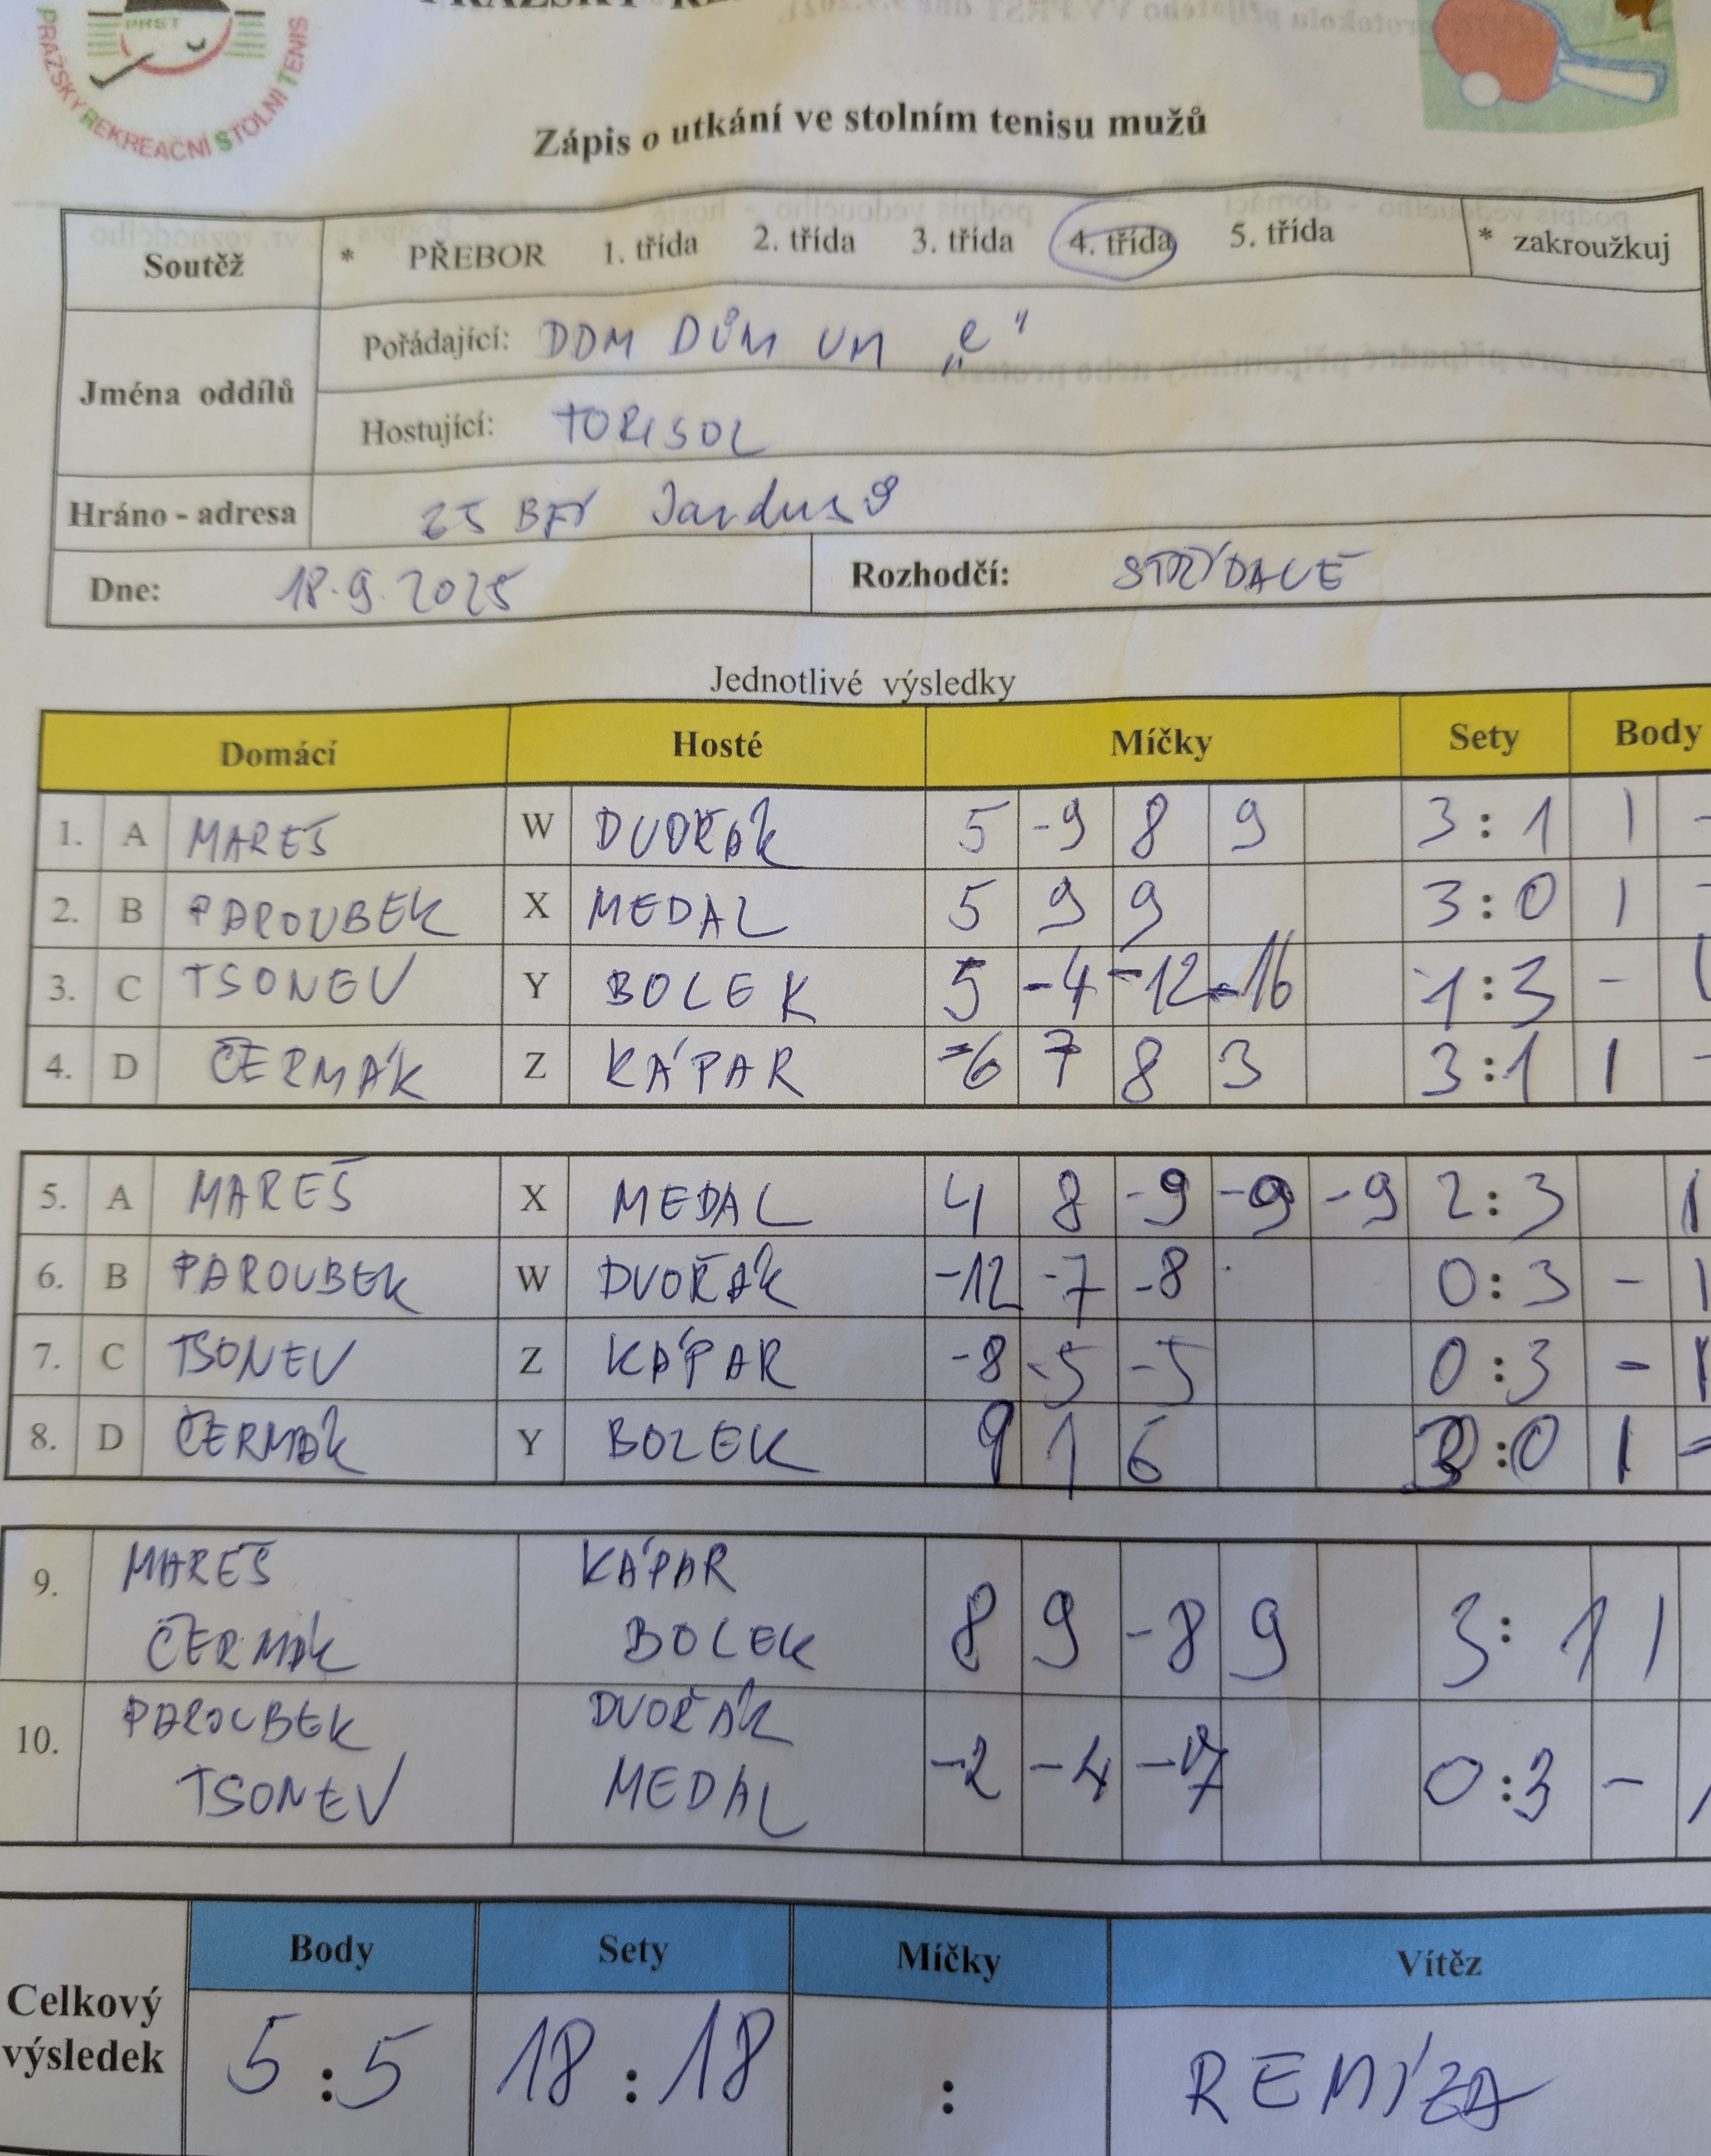 PRST
PRAŽSKÝ REKREAČNÍ STOLNÍ TENIS
Zápis o utkání ve stolním tenisu mužů
Soutěž * PŘEBOR 1. třída 2. třída 3. třída 4. třída 5. třída * zakroužkuj
Jména oddílů
Pořádající: DDM DŮM UM „C“
Hostující: TORISOL
Hráno - adresa
Dne: 18.9.2025 Rozhodčí: STŘÍDAVĚ
Jednotlivé výsledky
Domácí Hosté Míčky Sety Body
1. A MAREŠ W DVOŘÁK 5 -9 8 9 3:1 1 -
2. B PAROUBEK X MEDAL 5 9 9 3:0 1 -
3. C TSONEV Y BOLEK 5 -4 -12 -16 1:3 - 1
4. D ČERMÁK Z KÁPAR -6 7 8 3 3:1 1 -
5. A MAREŠ X MEDAL 4 8 -9 -9 -9 2:3 1
6. B PAROUBEK W DVOŘÁK -12 -7 -8 0:3 - 1
7. C TSONEV Z KÁPAR -8 -5 -5 0:3 - 1
8. D ČERMÁK Y BOLEK 9 1 6 3:0 1 -
9. MAREŠ KÁPAR
ČERMÁK BOLEK 8 9 -8 9 3:1 1
10. PAROUBEK DVOŘÁK
TSONEV MEDAL -2 -4 -7 0:3 - 1
Body Sety Míčky Vítěz
Celkový výsledek 5:5 18:18 : REMÍZA